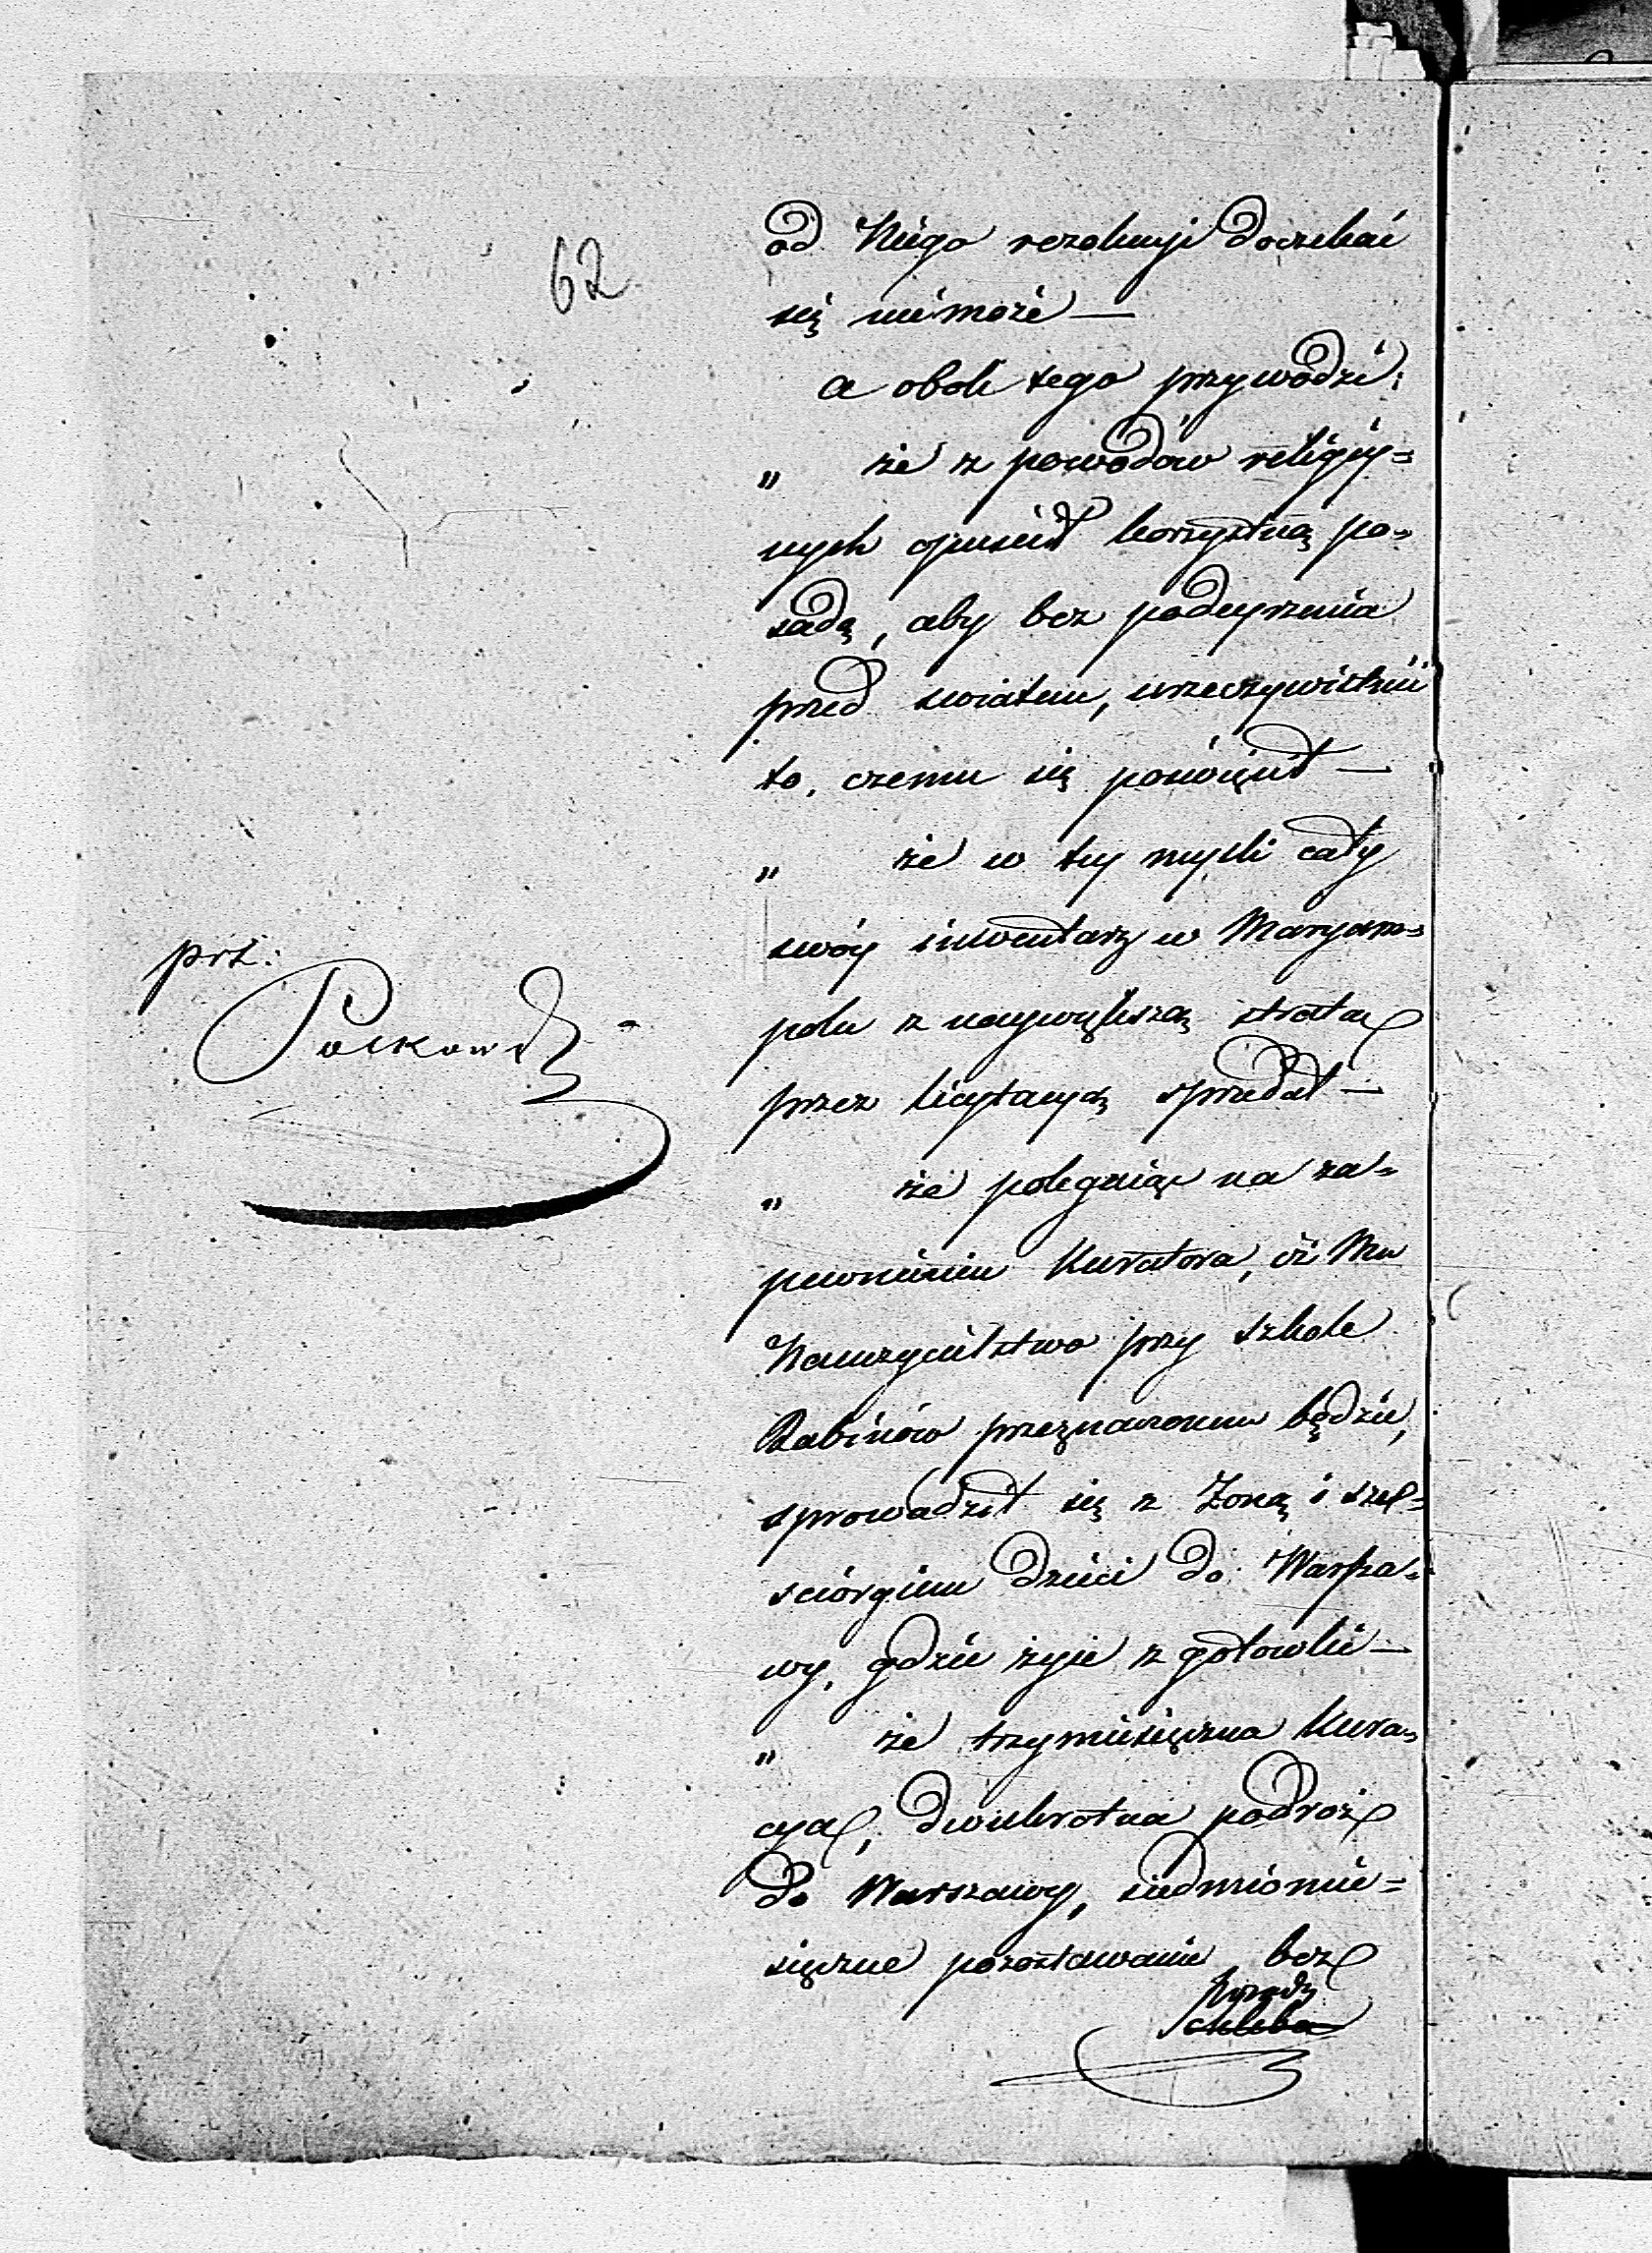 62
od Niego rezolucyi doczekać
się niemoże —
a obok tego przywodzi:
„ że z powodów religiy=
nych opuścił korzystną po=
sadę, aby bez podeyrzenia
przed światem, urzeczywistnić
to, czemu się poświęcił —
„ że w tey myśli cały
swóy inwentarz w Maryam=
polu z naywiększą stratą
przez licytacyą sprzedał —
„ że polegaiąc na za=
pewnieniu Kuratora, iż Mu
Nauczycielstwo przy szkole
Rabinów przeznaczonem będzie,
sprowadził się z Żoną i sze=
sciorgiem dzieci do Warsza=
wy, gdzie żyie z gotowki —
„ że trzymiesięczna Kura=
cya, dwukrotna podroż
do Warszawy, siedmiomie=
sięczne pozostawanie bez
chleba
prz: